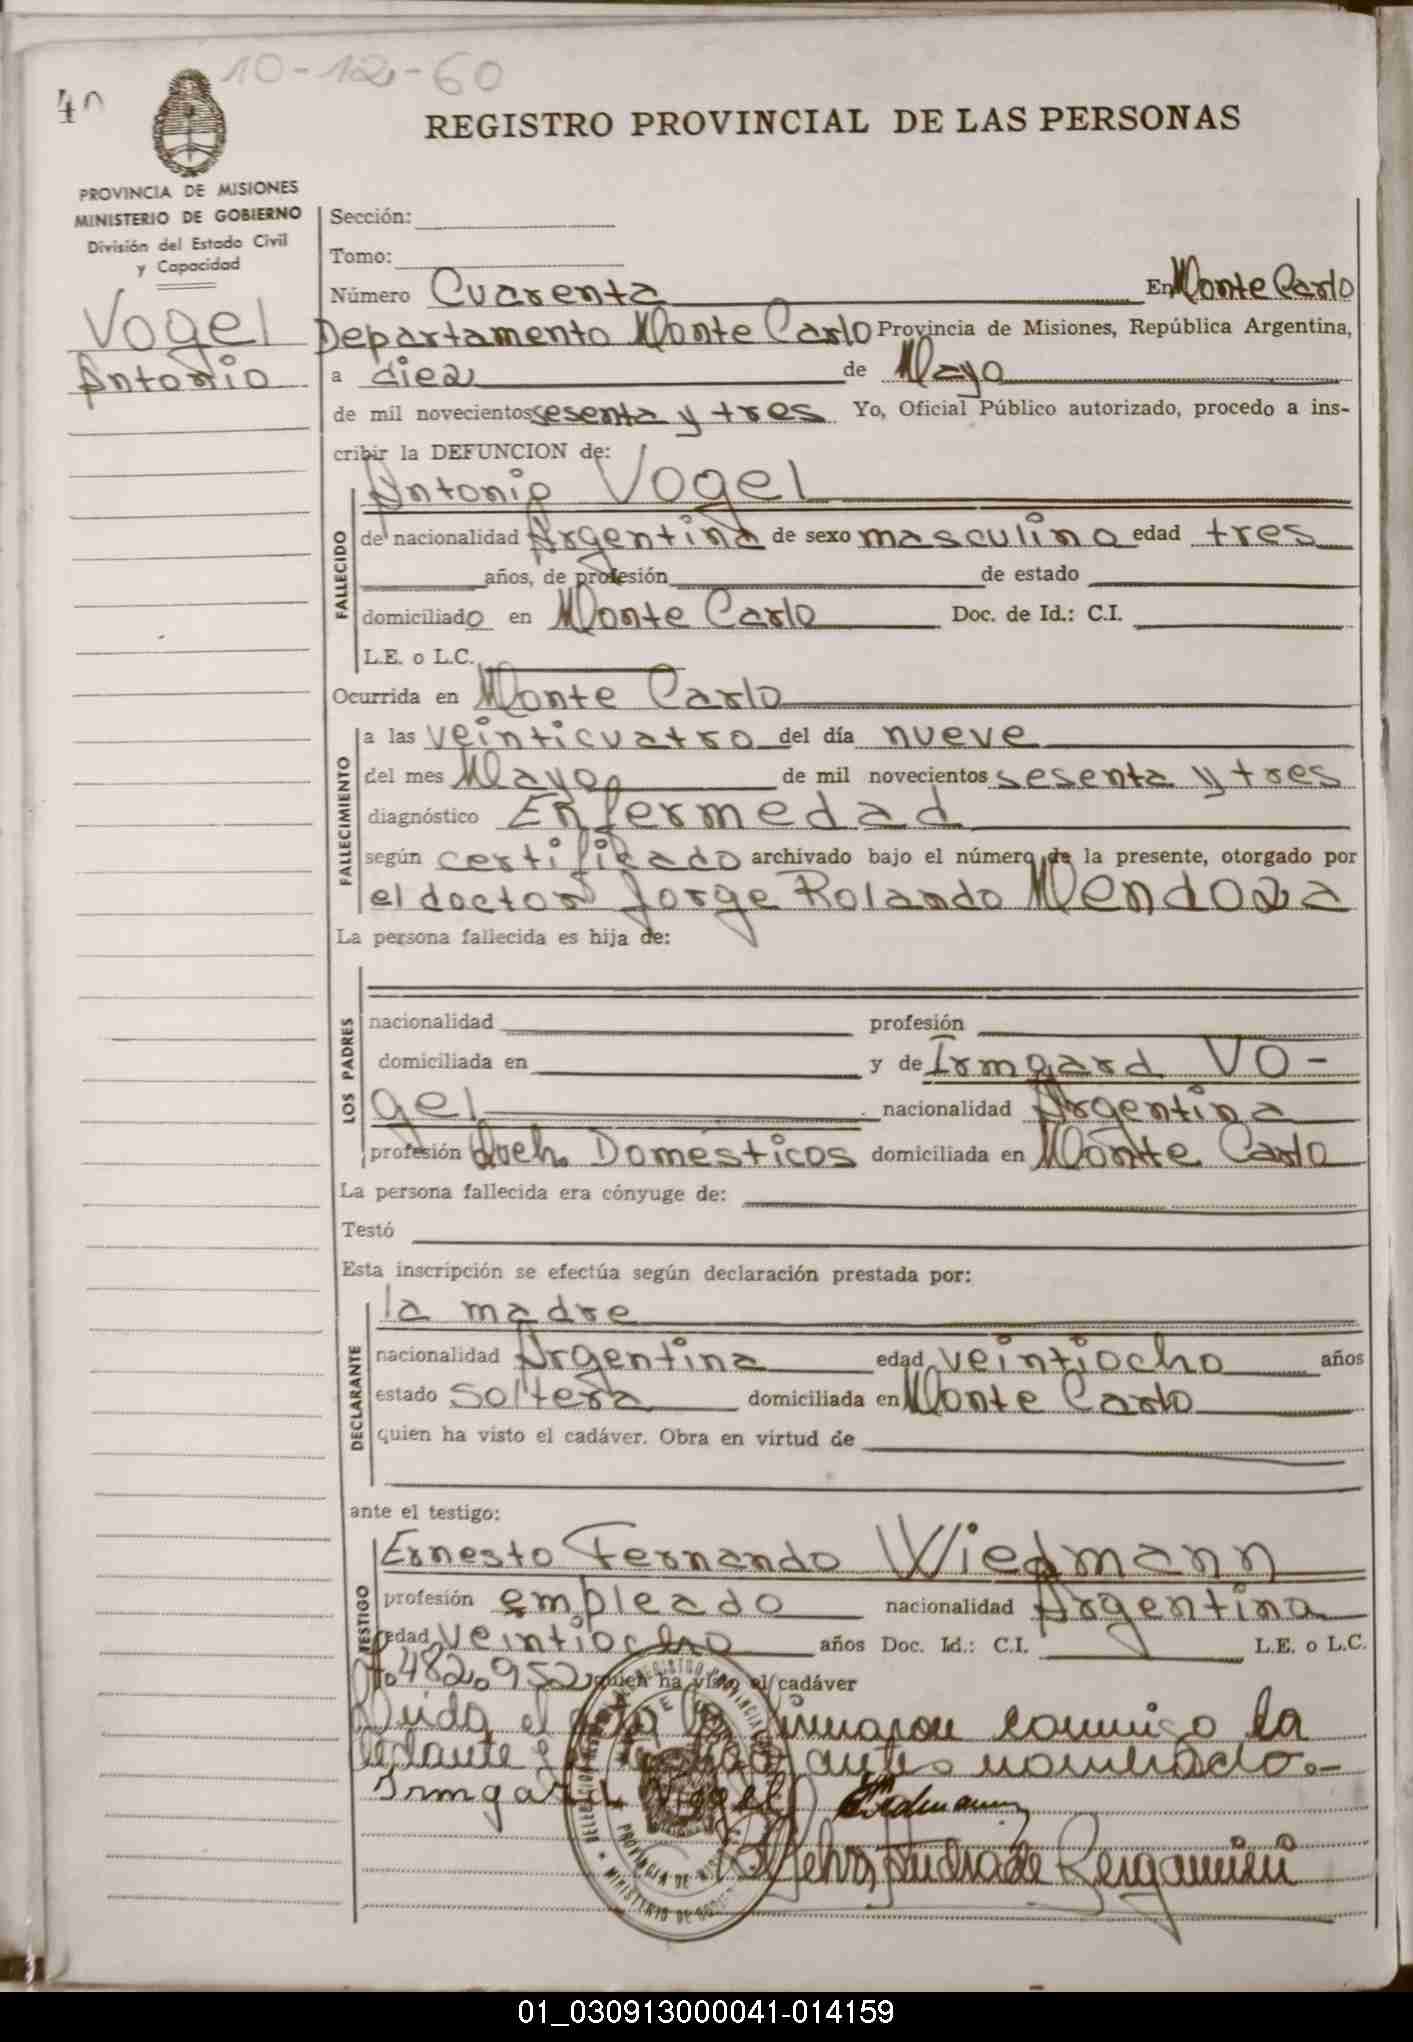 10-12-60
40
REGISTRO PROVINCIAL DE LAS PERSONAS
PROVINCIA DE MISIONES
MINISTERIO DE GOBIERNO
División del Estado Civil
y Capacidad
Vogel
Antonio
Sección:
Tomo:
Número Cuarenta En Monte Carlo
Departamento Monte Carlo Provincia de Misiones, República Argentina,
a diez de Mayo
de mil novecientos sesenta y tres Yo, Oficial Público autorizado, procedo a ins-
cribir la DEFUNCION de:
FALLECIDO
Antonio Vogel
de nacionalidad Argentina de sexo masculino edad tres
años, de profesión de estado
domiciliado en Monte Carlo Doc. de Id.: C.I.
L.E. o L.C.
Ocurrida en Monte Carlo
FALLECIMIENTO
a las veinticuatro del día nueve
del mes Mayo de mil novecientos sesenta y tres
diagnóstico Enfermedad
según certificado archivado bajo el número de la presente, otorgado por
el doctor Jorge Rolando Mendoza
La persona fallecida es hija de:
LOS PADRES
nacionalidad profesión
domiciliada en y de Irmgard Vo-
gel nacionalidad Argentina
profesión Queh. Domésticos domiciliada en Monte Carlo
La persona fallecida era cónyuge de:
Testó
Esta inscripción se efectúa según declaración prestada por:
DECLARANTE
la madre
nacionalidad Argentina edad veintiocho años
estado soltera domiciliada en Monte Carlo
quien ha visto el cadáver. Obra en virtud de
ante el testigo:
TESTIGO
Ernesto Fernando Wiedmann
profesión empleado nacionalidad Argentina
edad veintiocho años Doc. Id.: C.I. L.E. o L.C.
482.952 quien ha visto el cadáver
el acta la firmaron conmigo la
antes nombrado.-
Irmgard Vogel
Andrade Bergamini
PROVINCIA DE MISIONES
MINISTERIO DE GOBIERNO
01_030913000041-014159